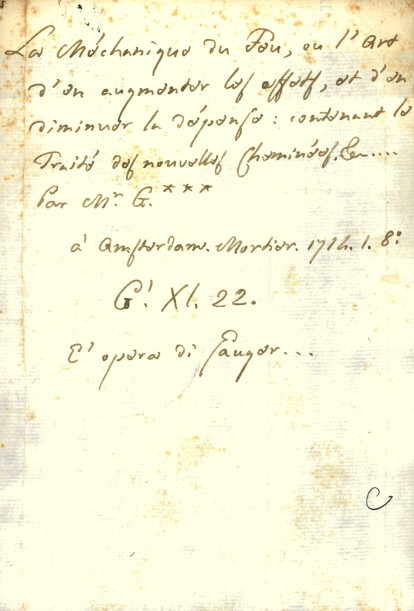 La Méchanique du Feu, ou l'Art
d'en augmenter les effets, et d'en
diminuer la dépense: contenant le
Traité des nouvelles Cheminées. &c....
Par Mr. G.***
à Amsterdam. Mortier. 1714. 1. 8º
G! XI. 22.
E' opera di Gauger...
C